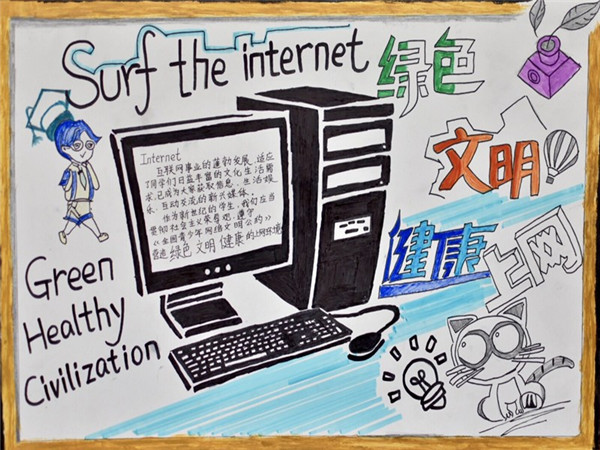 Surf the internet
绿色
文明
健康
上网
Internet
互联网事业的蓬勃发展,适应
了同学们日益丰富的文化生活需
求,已成为大家获取信息、生活娱
乐、互动交流的新兴媒体。
作为新世纪的学生,我们应当
贯彻社会主义荣辱观,遵守
《全国青少年网络文明公约》
营造绿色 文明 健康的上网环境
Green
Healthy
Civilization